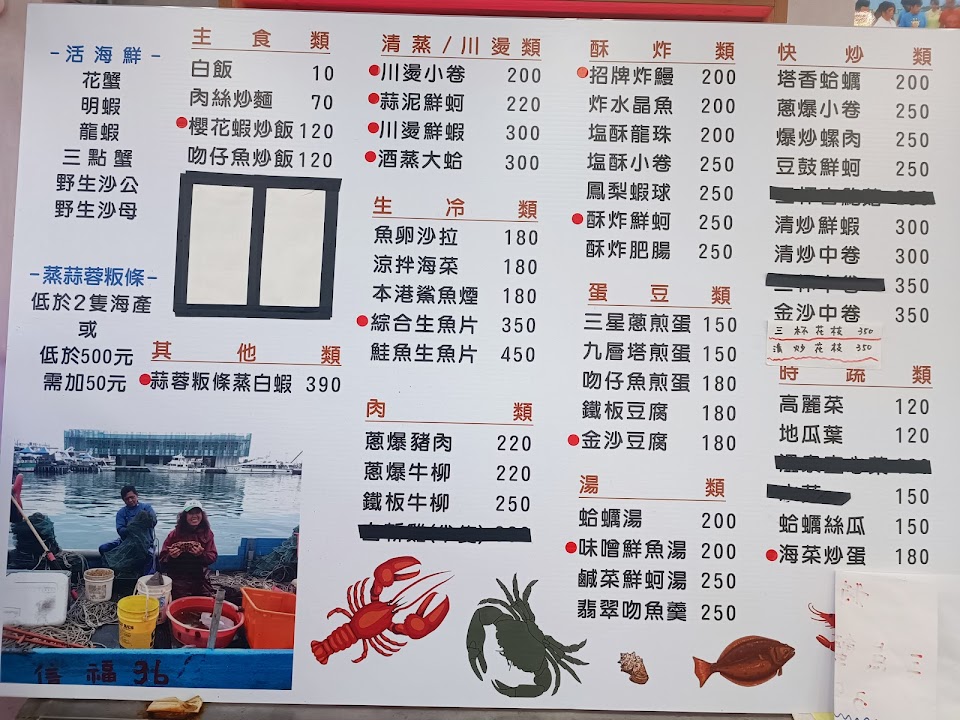 -活海鮮-
花蟹
明蝦
龍蝦
三點蟹
野生沙公
野生沙母
-蒸蒜蓉粄條-
低於2隻海產
或
低於500元
需加50元
主食類
白飯 10
肉絲炒麵 70
櫻花蝦炒飯 120
吻仔魚炒飯 120
其他類
蒜蓉粄條蒸白蝦 390
清蒸/川燙類
川燙小卷 200
蒜泥鮮蚵 220
川燙鮮蝦 300
酒蒸大蛤 300
生冷類
魚卵沙拉 180
涼拌海菜 180
本港鯊魚煙 180
綜合生魚片 350
鮭魚生魚片 450
肉類
蔥爆豬肉 220
蔥爆牛柳 220
鐵板牛柳 250
酥炸類
招牌炸鰻 200
炸水晶魚 200
塩酥龍珠 200
塩酥小卷 250
鳳梨蝦球 250
酥炸鮮蚵 250
酥炸肥腸 250
蛋豆類
三星蔥煎蛋 150
九層塔煎蛋 150
吻仔魚煎蛋 180
鐵板豆腐 180
金沙豆腐 180
湯類
蛤蠣湯 200
味噌鮮魚湯 200
鹹菜鮮蚵湯 250
翡翠吻魚羹 250
快炒類
塔香蛤蠣 200
蔥爆小卷 250
爆炒螺肉 250
豆鼓鮮蚵 250
清炒鮮蝦 300
清炒中卷 300
350
金沙中卷 350
三杯花枝 350
清炒花枝 350
時蔬類
高麗菜 120
地瓜葉 120
150
蛤蠣絲瓜 150
海菜炒蛋 180
信福36